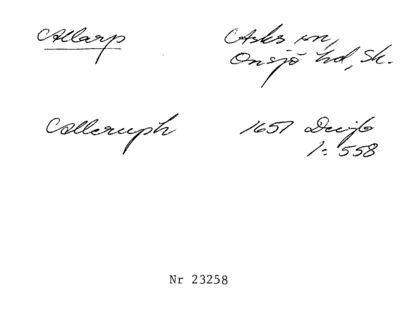 Allarp Asks sn,
Onsjö hd, Sk.
Alleruph 1657 Dewijb
1: 558
Nr 23258